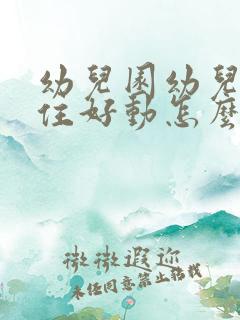 幼兒園幼兒
住好動怎麼
微微遐迩
未经同意禁止转载